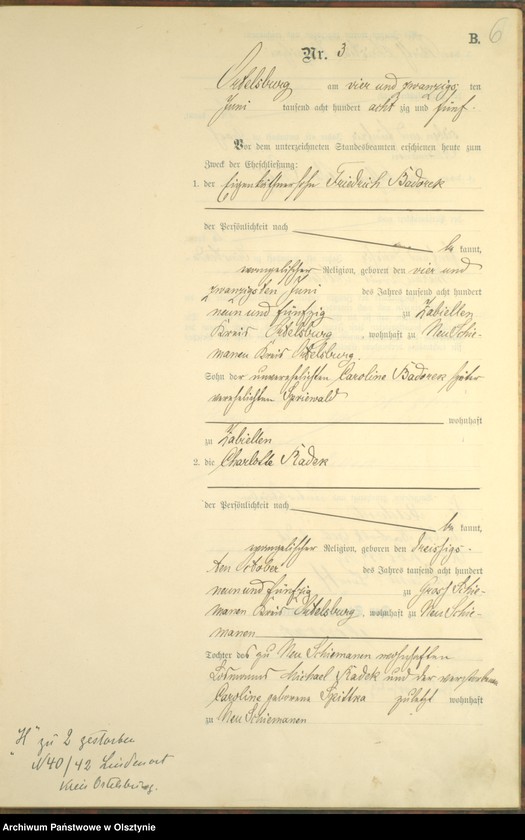 6
B.
Nr. 3
Ortelsburg am vier und zwanzigs ten
Juni tausend acht hundert acht zig und fünf.
Vor dem unterzeichneten Standesbeamten erschienen heute zum
Zweck der Eheschließung:
1. der Eigenkäthnersohn Friedrich Badorek
der Persönlichkeit nach
be kannt,
evangelischer Religion, geboren den vier und
zwanzigsten Juni des Jahres tausend acht hundert
neun und fünfzig zu Zabiellen
Kreis Ortelsburg, wohnhaft zu Neu Schie-
manen Kreis Ortelsburg.
Sohn der unverehelichten Caroline Badorek später
verehelichten
wohnhaft
zu Zabiellen
2. die Charlotte Kadek
der Persönlichkeit nach
be kannt,
evangelischer Religion, geboren den dreissigs-
ten October des Jahres tausend acht hundert
neun und fünfzig zu Gross Schie-
manen Kreis Ortelsburg, wohnhaft zu Neu Schie-
manen
Tochter des zu Neu Schiemanen wohnhaften
Losmanns Michael Kadek und der verstorbenen
Caroline geborene zuletzt wohnhaft
zu Neu Schiemanen
"H" zu 2 gestorben
N 40/42 Lindenort
Kreis Ortelsburg.
Archiwum Państwowe w Olsztynie